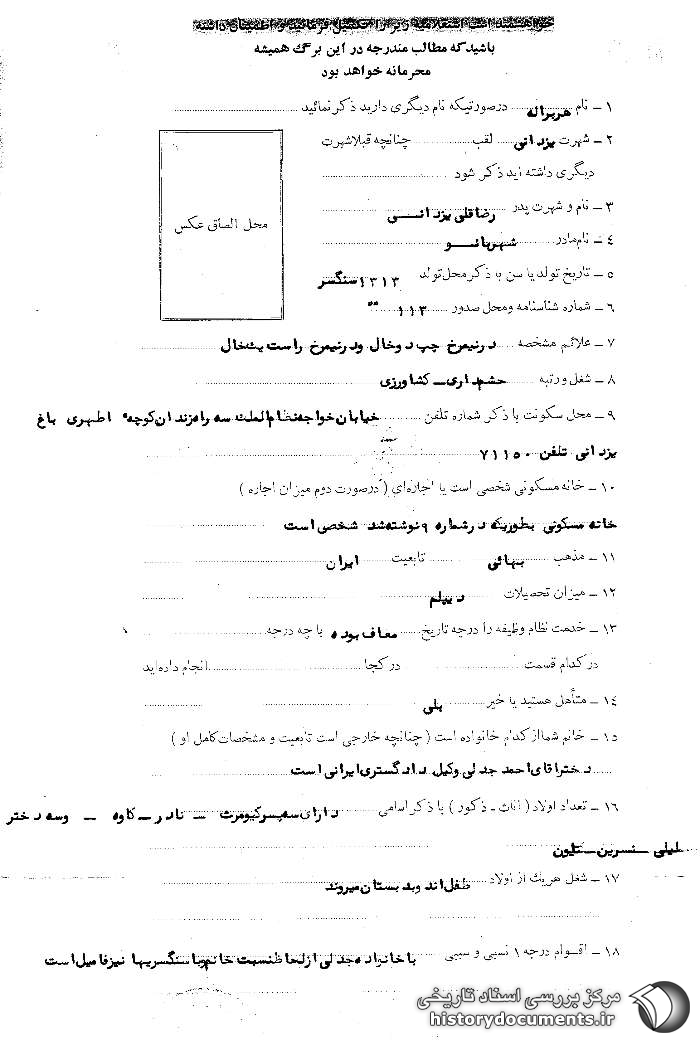 خواهشمند است استعلامیه زیر را تکمیل فرمائید و اطمینان داشته
باشید که مطالب مندرجه در این برگ همیشه
محرمانه خواهد بود
۱ ـ نام هژبراله درصورتیکه نام دیگری دارید ذکر نمائید
۲ ـ شهرت یزدانی لقب چنانچه قبلا شهرت
دیگری داشته اید ذکر شود
محل الصاق عکس
۳ ـ نام و شهرت پدر رضاقلی یزدانی
۴ ـ نام مادر شهربانو
۵ ـ تاریخ تولد یا سن با ذکر محل تولد ۱۳۱۳ سنگسر
۶ ـ شماره شناسنامه ومحل صدور ۱۱۳ "
۷ ـ علائم مشخصه درنیمرخ چپ دوخال ودرنیمرخ راست یکخال
۸ ـ شغل و رتبه حشم داری ـ کشاورزی
۹ ـ محل سکونت با ذکر شماره تلفن خیابان خواجه نظام الملک سه راه زندان کوچه اطهری باغ
یزدانی تلفن ۷۱۱۵۰
۱۰ ـ خانه مسکونی شخصی است یا اجاره‌ای ( درصورت دوم میزان اجاره )
خانه مسکونی بطوریکه درشماره ۹ نوشته شد شخصی است
۱۱ ـ مذهب بهائی تابعیت ایران
۱۲ ـ میزان تحصیلات دیپلم
۱۳ ـ خدمت نظام وظیفه را درچه تاریخ معاف بوده با چه درجه
در کدام قسمت در کجا انجام داده‌اید
۱۴ ـ متأهل هستید یا خیر بلی
۱۵ ـ خانم شما از کدام خانواده است ( چنانچه خارجی است تابعیت و مشخصات کامل او )
دختراقای احمد جدلی وکیل دادگستری ایرانی است
۱۶ ـ تعداد اولاد ( اناث ـ ذکور ) با ذکر اسامی دارای سه پسرکیومرث ـ نادر ـ کاوه ـ وسه دختر
لیلی ـ نسرین ـ
۱۷ ـ شغل هریک از اولاد طفل اند وبدبستان میروند
۱۸ ـ اقوام درجه ۱ نسبی و سببی باخانواده جدلی ازلحاظ نسبت خانم باسنگسریها نیزفامیل است
مرکز بررسی اسناد تاریخی
historydocuments.ir